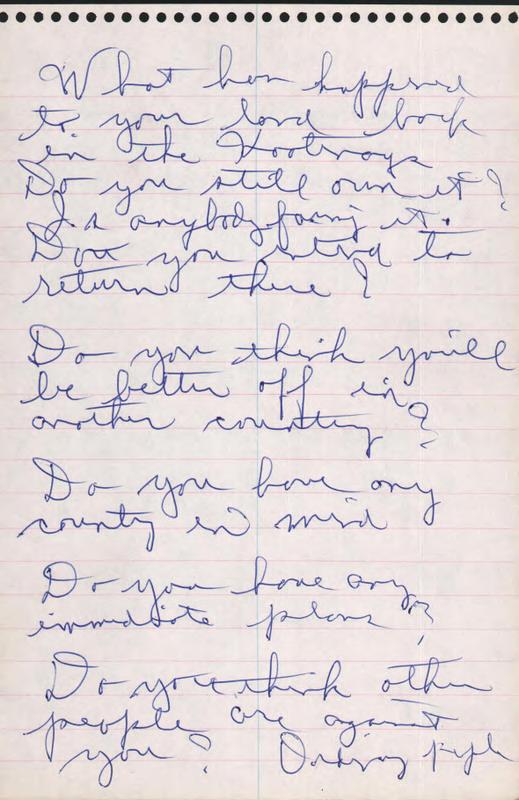 What has happened
to your land back
in the Kootenays
Do you still own it?
Is anybody farming it.
Do you intend to
return there?
Do you think you'll
be better off in
another country?
Do you have any
country in mind
Do you have any
immediate plans?
Do you think other
people are against
you? Ordinary people